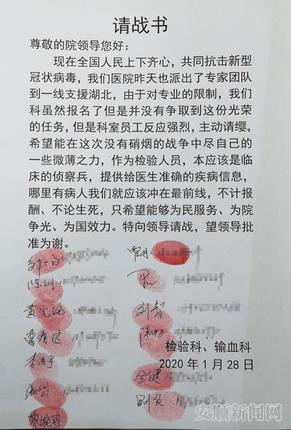 请战书
尊敬的院领导您好：
现在全国人民上下齐心，共同抗击新型
冠状病毒，我们医院昨天也派出了专家团队
到一线支援湖北，由于对专业的限制，我们
科虽然报名了但是并没有争取到这份光荣
的任务，但是科室员工反应强烈，主动请缨，
希望能在这次没有硝烟的战争中尽自己的
一些微薄之力，作为检验人员，本应该是临
床的侦察兵，提供给医生准确的疾病信息，
哪里有病人我们就应该冲在最前线，不计报
酬、不论生死，只希望能够为民服务、为院
争光、为国效力。特向领导请战，望领导批
准为谢。
检验科、输血科
2020 年 1 月 28 日
安顺新闻网